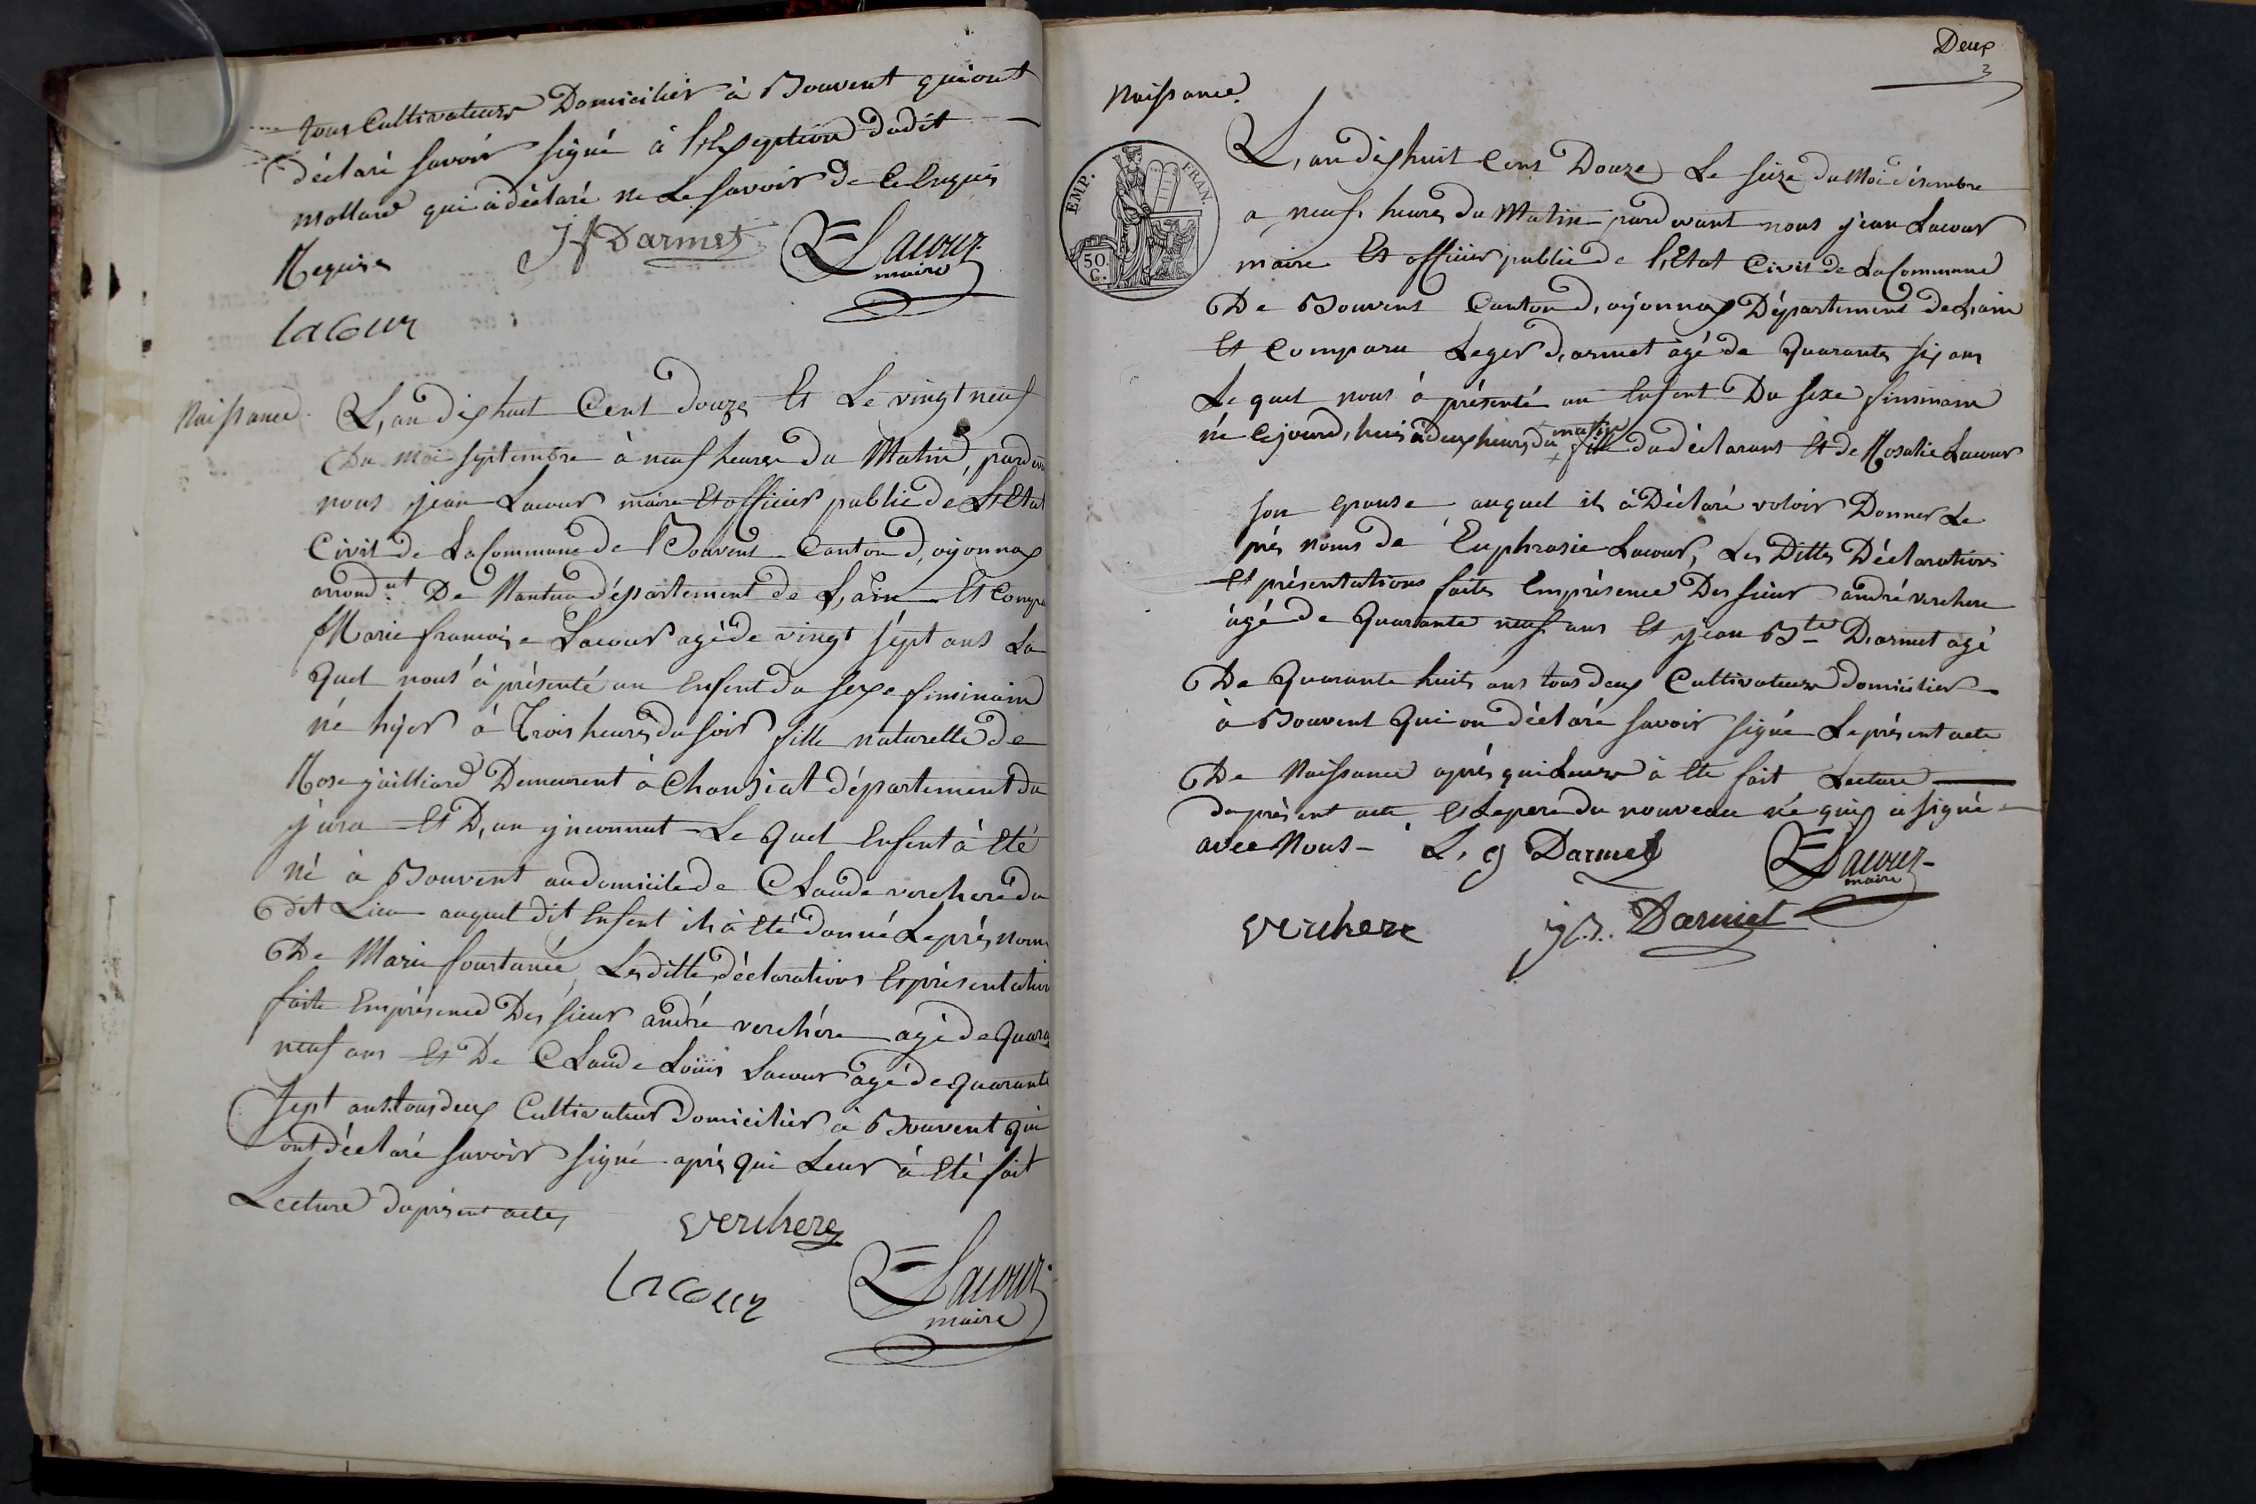 tous Cultivateurs Domicilier à Bouvent qui ont
déclaré savoir signé à l'Exseption dudit
Mollard qui à déclaré ne Le savoir de Ce Enquis
Requis
JF Darmet
Lacour
maire
lacour
Naissance.
L'an dix huit Cent douze Et Le vingt neuf
Du moi septembre à neuf heures du Matin, pardev
nous jean Lacour maire Et officier public de L'Etat
Civil de La Commune de Bouvent Canton d'oyonnax
arrond.nt De Nantua département de L'ain Et Compa
Marie francoise Lacour agé de vingt sépt ans La
quel nous à présenté un Enfent du sexe fiminain
né hyer à Trois heures du soir fille naturelle de
Rose jailliard Demeurent à Chansiat département du
jura Et D'un ynconnut Le quel Enfent à Eté
né à Bouvent au domicile de Claude verchere du
dit Lieu auquel dit Enfent ils à Eté donné Le prés nom
De Marie fourtunée, Les ditte déclarations Et présentation
faite En présence Des sieur andré verchére agé de quara
neuf ans Et De Claude Louis Lacour agé de quarante
sept ans tous deux Cultivateur Domicilier à Bouvent qui
ont déclaré savoir signé après qui Leur à Eté fait
Lecture du présent acte,
verchere
lacour
Lacour
maire
Deux
2
Naissance.
EMP. FRAN.
50.
C.
L'an dix huit Cent Douze Le seize du Moi désembre
a neuf heures du Matin pardevant nous jean Lacour
maire Et officier public de l'Etat Civil de La Commune
De Bouvent Canton d'oyonnax Département de L'ain
Et Comparu Leger d'armet agé de quarante six ans
Le quel nous à présenté un Enfent Du sexe fiminain
né Cejourd'hui à deux heures du matin fille du déclarant Et de Rosalie Lacour
son epouse auquel ils à Déclaré voloir Donner Le
prés noms de Euphrasie Lacour, Les Dittes Déclarations
Et présentations faites En présence Des sieur andré verchere
âgé de quarante neuf ans Et jean Bte D'armet agé
De quarante huit ans tous deux Cultivateur domicilier
à Bouvent qui on déclaré savoir signé Le présent acte
De Naissance après qui Leurs à Eté fait Lecture
du présent acte Et Le pere du nouveau né qui a signé
avec Nous
L. g Darmet
Lacour
maire
verchere
j.B. Darmet